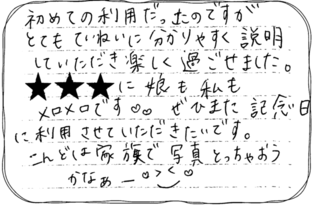 初めての利用だったのですが
とてもていねいに分かりやすく説明
していただき楽しく過ごせました。
★★★に娘も私も
メロメロです♡♡ ぜひまた記念日
に利用させていただきたいです。
こんどは家族で写真とっちゃおう
かなぁー